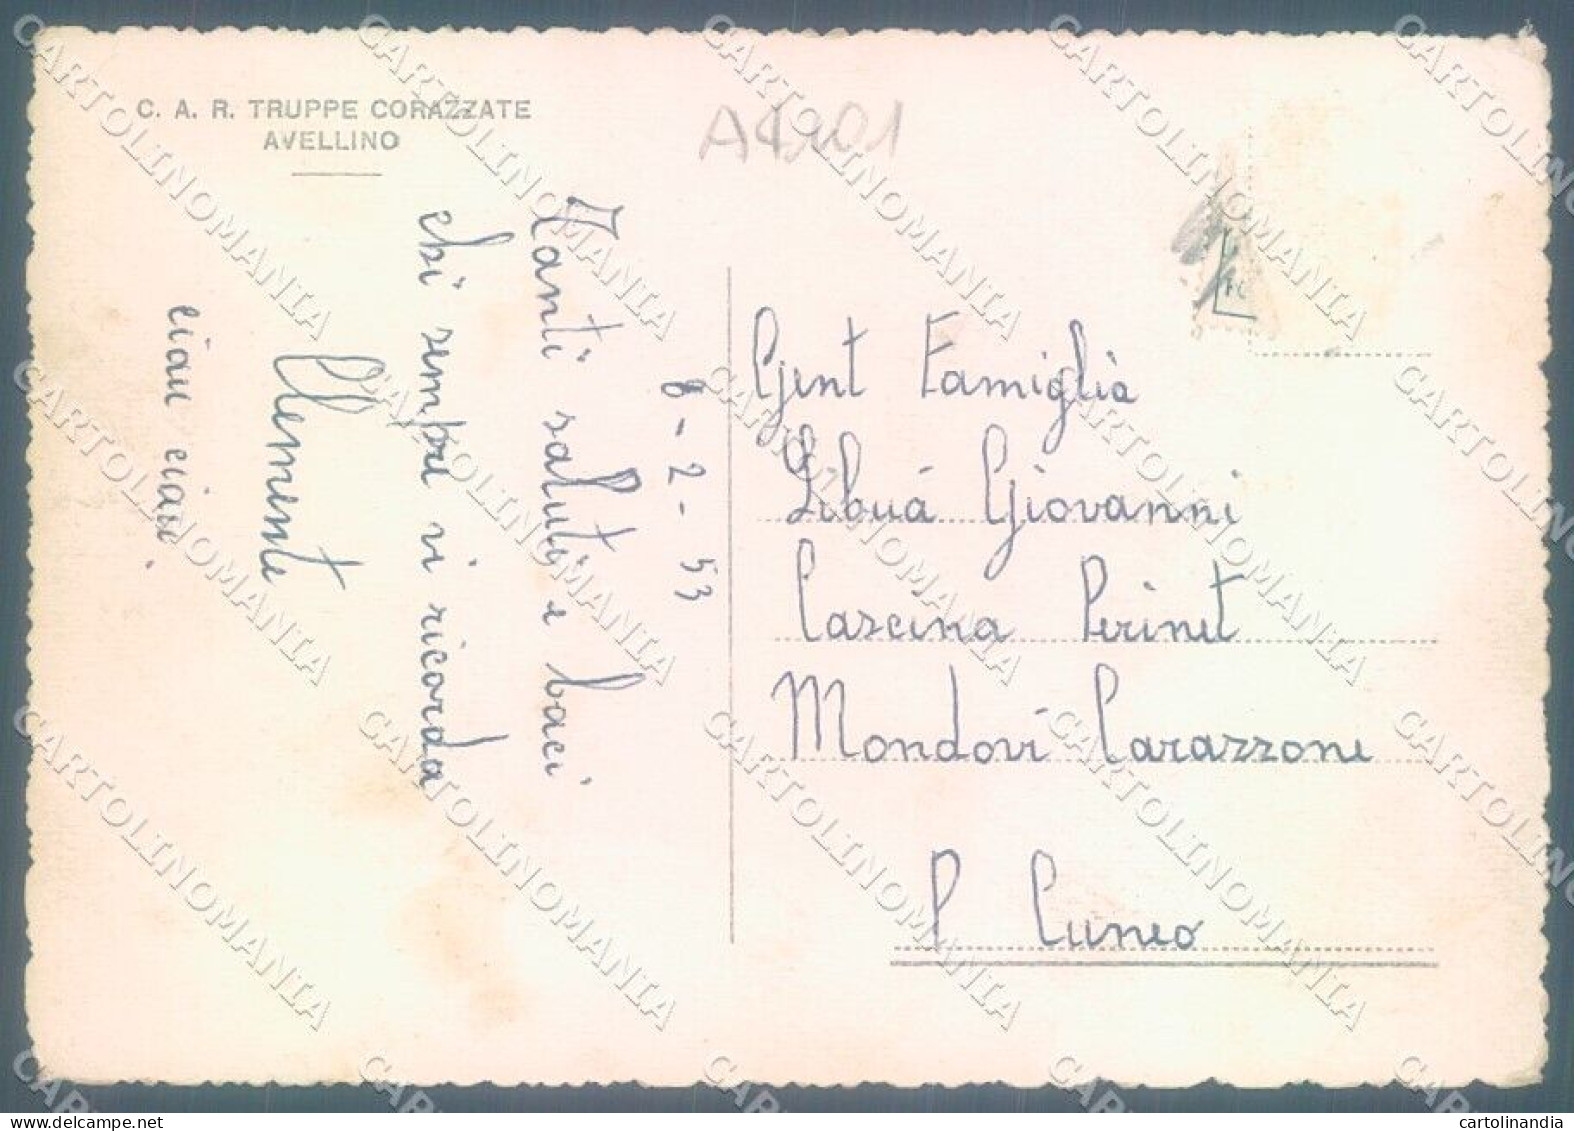 C. A. R. TRUPPE CORAZZATE
AVELLINO
A4901
8-2-53
Tanti saluti e baci
chi sempre vi ricorda
Clemente
ciau ciau
Gent Famiglia
Libuá Giovanni
Cascina Perinet
Mondovi Carazzone
P Cuneo
CARTOLINOMANIA
cartolinandia